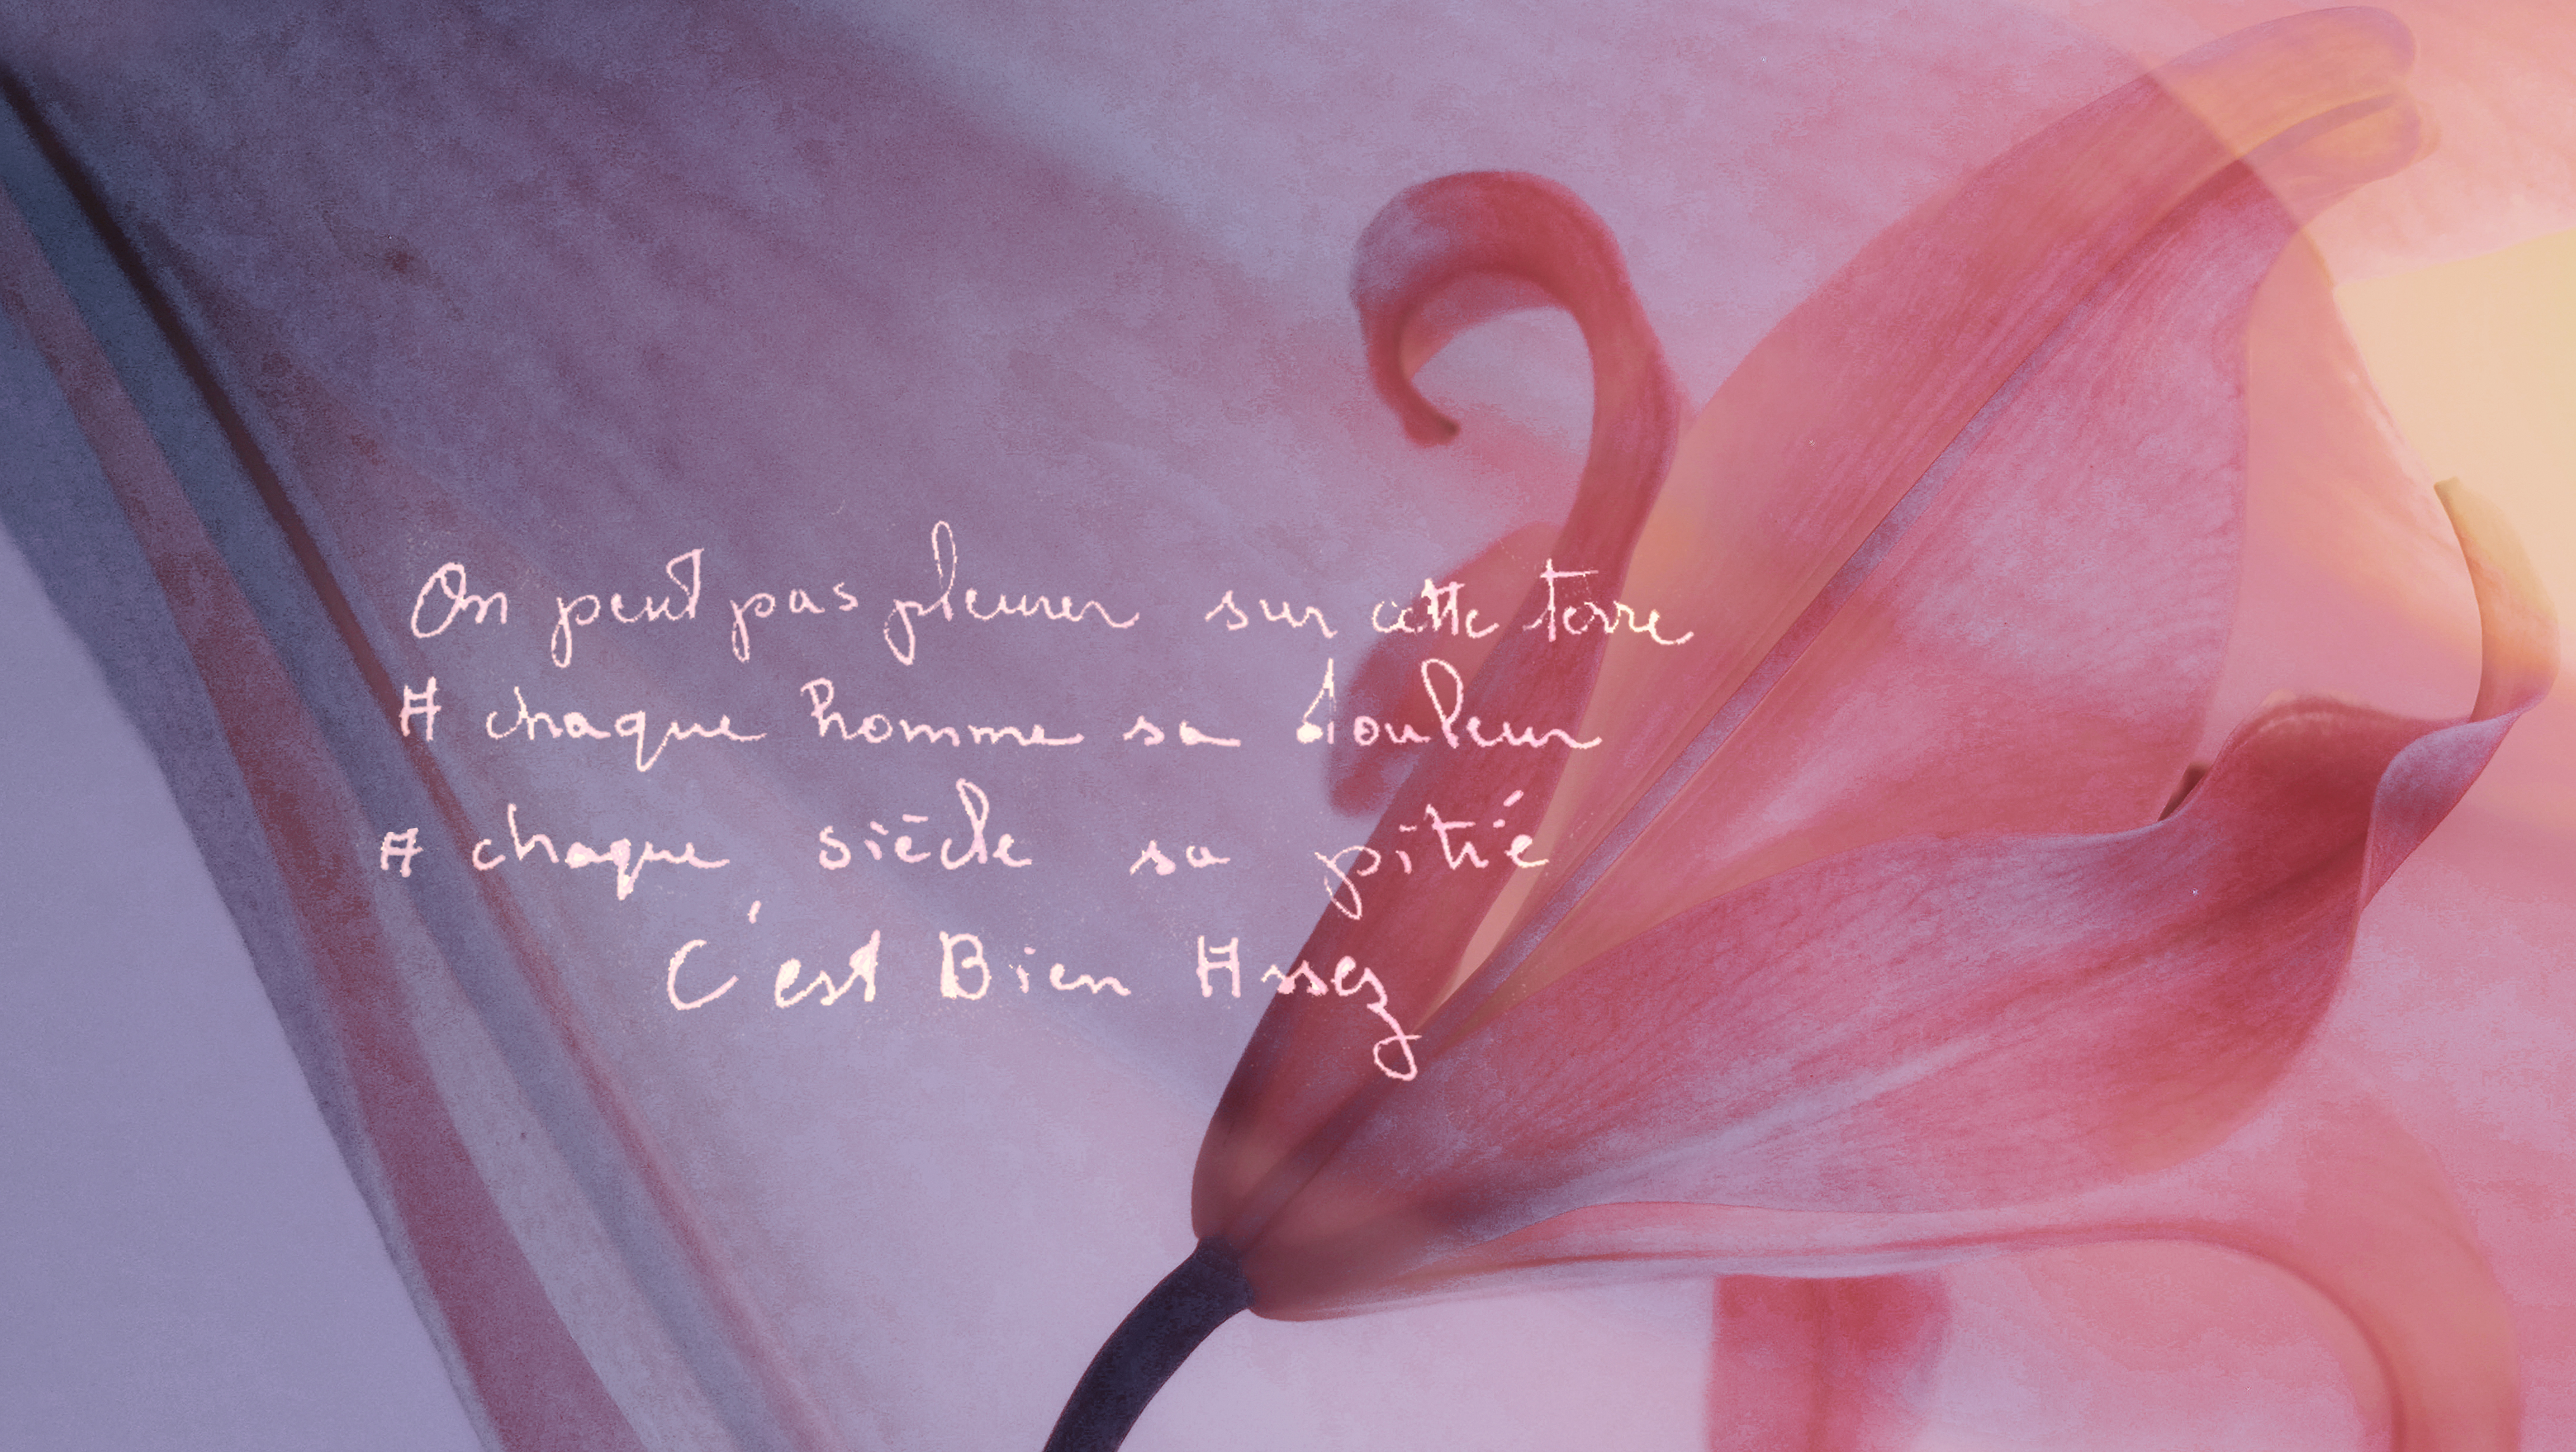 On peut pas pleurer sur cette terre
A chaque homme sa douleur
A chaque siècle sa pitié
C'est Bien Assez